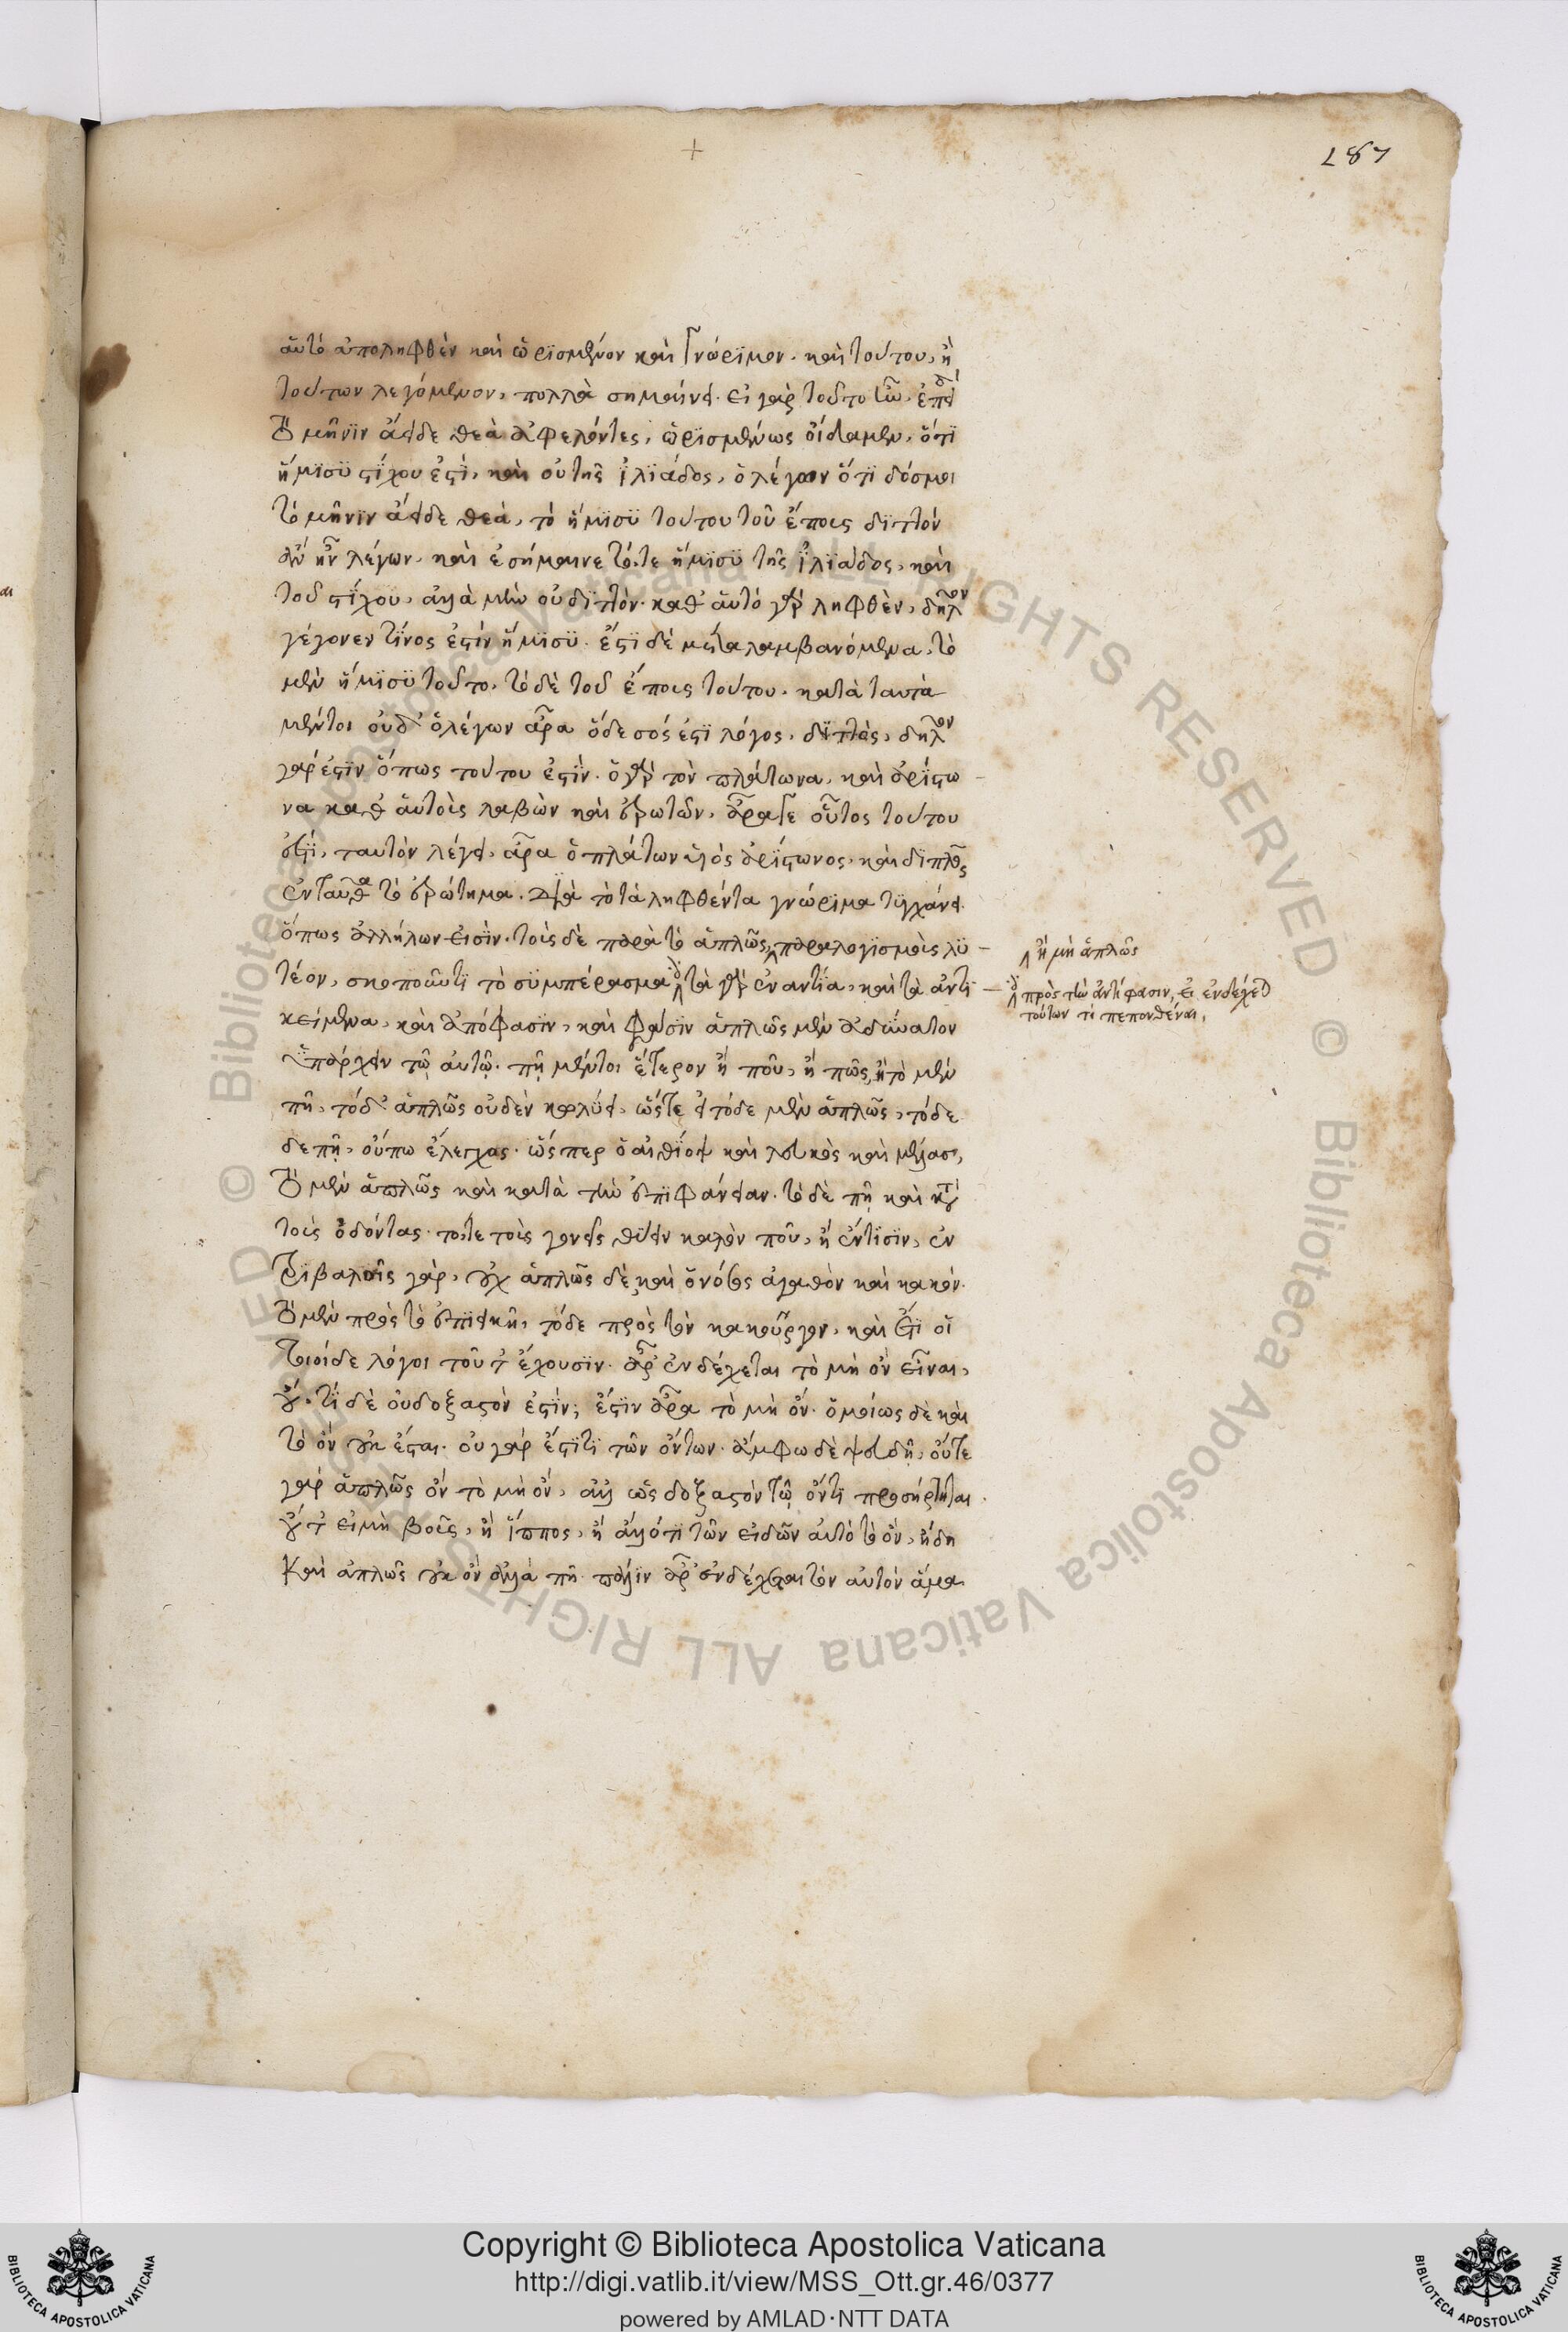 187
αὑτὸ ἀποληφθὲν καὶ ὡρισμένον καὶ γνώριμον. καὶ τούτου, ἢ
τούτων λεγόμενον, πολλὰ σημαίνει. εἰ γὰρ τοῦτο
τὸ μῆνιν ἄειδε θεὰ ἀφελόντες, ὡρισμένως οἴδαμεν, ὅτι
ἥμισυ στίχου ἐστὶ, καὶ οὐ τῆς ἰλιάδος, ὁ λέγων ὅτι δόσμοι
τὸ μῆνιν ἄειδε θεὰ, τὸ ἥμισυ τούτου τοῦ ἔπους διττὸν
ἂν ἦν λέγων, καὶ ἐσήμαινε τό, τε ἥμισυ τῆς ἰλιάδος, καὶ
τοῦ στίχου, ἀλλὰ μὴν οὐ διττὸν. καθ' αὑτὸ γὰρ ληφθὲν, δῆλον
γέγονεν τίνος ἐστὶν ἥμισυ. ἔστι δὲ μεταλαμβανόμενα, τὸ
μὲν ἥμισυ τοῦτο, τὸ δὲ τοῦ ἔπους τούτου. κατὰ ταυτὰ
μέντοι οὐδ' ὁ λέγων ἆρα ὅδε σός ἐστι λόγος, διττὸς, δῆλον
γάρ ἐστιν ὅπως τούτου ἐστίν. ὁ γὰρ τὸν πλάτωνα, καὶ ἀρίστω
να καθ' αὑτοὺς λαβὼν καὶ ἐρωτῶν, ἆρά γε οὗτος τούτου
ἐστὶ, ταυτὸν λέγει, ἆρα ὁ πλάτων υἱὸς ἀρίστωνος, καὶ διπλοῦς
ἐνταῦθα τὸ ἐρώτημα. διὰ τὸ τὰ ληφθέντα γνώριμα τυγχάνει
ὅπως ἀλλήλων εἰσὶν. τοὺς δὲ παρὰ τὸ ἁπλῶς, παραλογισμοὺς λυ
ἢ μὴ ἁπλῶς
τέον, σκοποῦντι τὸ συμπέρασμα τὰ γὰρ ἐναντία, καὶ τὰ ἀντι
πρὸς τὴν ἀντίφασιν, εἰ ἐνδέχεται
τούτων τι πεπονθέναι,
κείμενα, καὶ ἀπόφασιν, καὶ φάσιν ἁπλῶς μὲν ἀδύνατον
ὑπάρχειν τῷ αὐτῷ. πῇ μέντοι ἕτερον ἢ ποῦ, ἢ πῶς, ἢ τὸ μὲν
πῇ, τόδ' ἁπλῶς οὐδὲν κωλύει, ὥστε εἰ τόδε μὲν ἁπλῶς, τόδε
δε πῇ, οὔπω ἔλεγχος. ὥσπερ ὁ αἰθίοψ καὶ λευκὸς καὶ μέλας,
τὸ μὲν ἁπλῶς καὶ κατὰ τὴν ἐπιφάνειαν. τὸ δὲ πῇ καὶ κατὰ
τοὺς ὀδόντας. τό, τε τοὺς γονεῖς θύειν καλὸν ποῦ, ἢ ἔν τισιν, ἐν
τριβαλοῖς γάρ, οὐχ ἁπλῶς δὲ, καὶ ὁ νόμος ἀγαθὸν καὶ κακόν.
τὸ μὲν πρὸς τὸ ἐπιεικῆ, τόδε πρὸς τὸν κακοῦργον, καὶ ἔτι οἱ
τοιοίδε λόγοι τοῦτ' ἔχουσιν. ἆρ' ἐνδέχεται τὸ μὴ ὂν εἶναι,
οὔ. τί δὲ οὐ δοξαστὸν ἐστίν; ἔστιν ἄρα τὸ μὴ ὄν. ὁμοίως δὲ καὶ
τὸ ὂν οὐκ ἔσται. οὐ γάρ ἔστι τι τῶν ὄντων. ἄμφω δὲ ψευδῆ, οὔτε
γάρ ἁπλῶς ὂν τὸ μὴ ὂν, ἀλλ' ὡς δοξαστὸν τῷ ὄντι προσήρτηται.
οὔτ' εἰ μὴ βοῦς, ἢ ἵππος, ἢ ἄλλό τι τῶν εἰδῶν αὐτὸ τὸ ὂν, ἤδη
καὶ ἁπλῶς οὐκ ὂν ἀλλὰ πῇ πάλιν ἆρ' ἐνδέχεται τὸν αὐτὸν ἅμα
© Biblioteca Apostolica Vaticana ALL RIGHTS RESERVED © Biblioteca Apostolica Vaticana ALL RIGHTS RESERVED
BIBLIOTECA APOSTOLICA VATICANA
Copyright © Biblioteca Apostolica Vaticana
http://digi.vatlib.it/view/MSS_Ott.gr.46/0377
powered by AMLAD·NTT DATA
BIBLIOTECA APOSTOLICA VATICANA